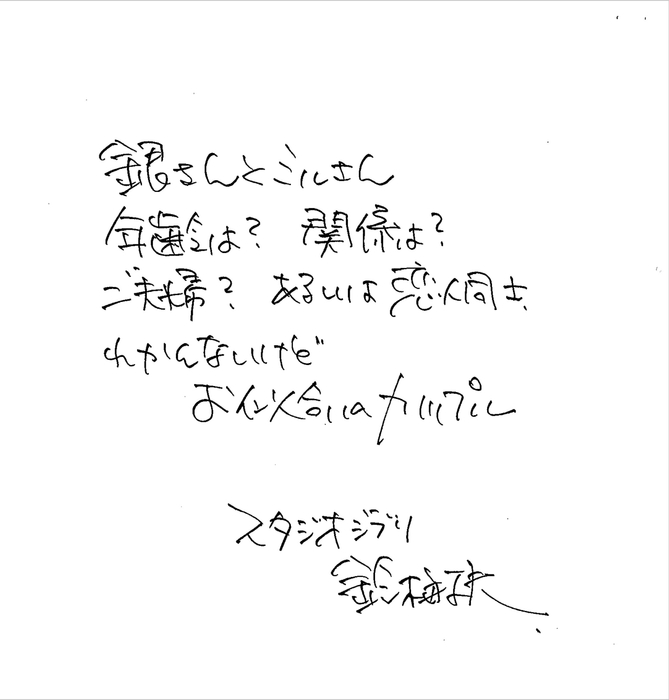 銀さんとミルさん
年齢は? 関係は?
ご夫婦? あるいは恋人同士、
わかんないけど
お似合いのカップル
スタジオジブリ
鈴木敏夫